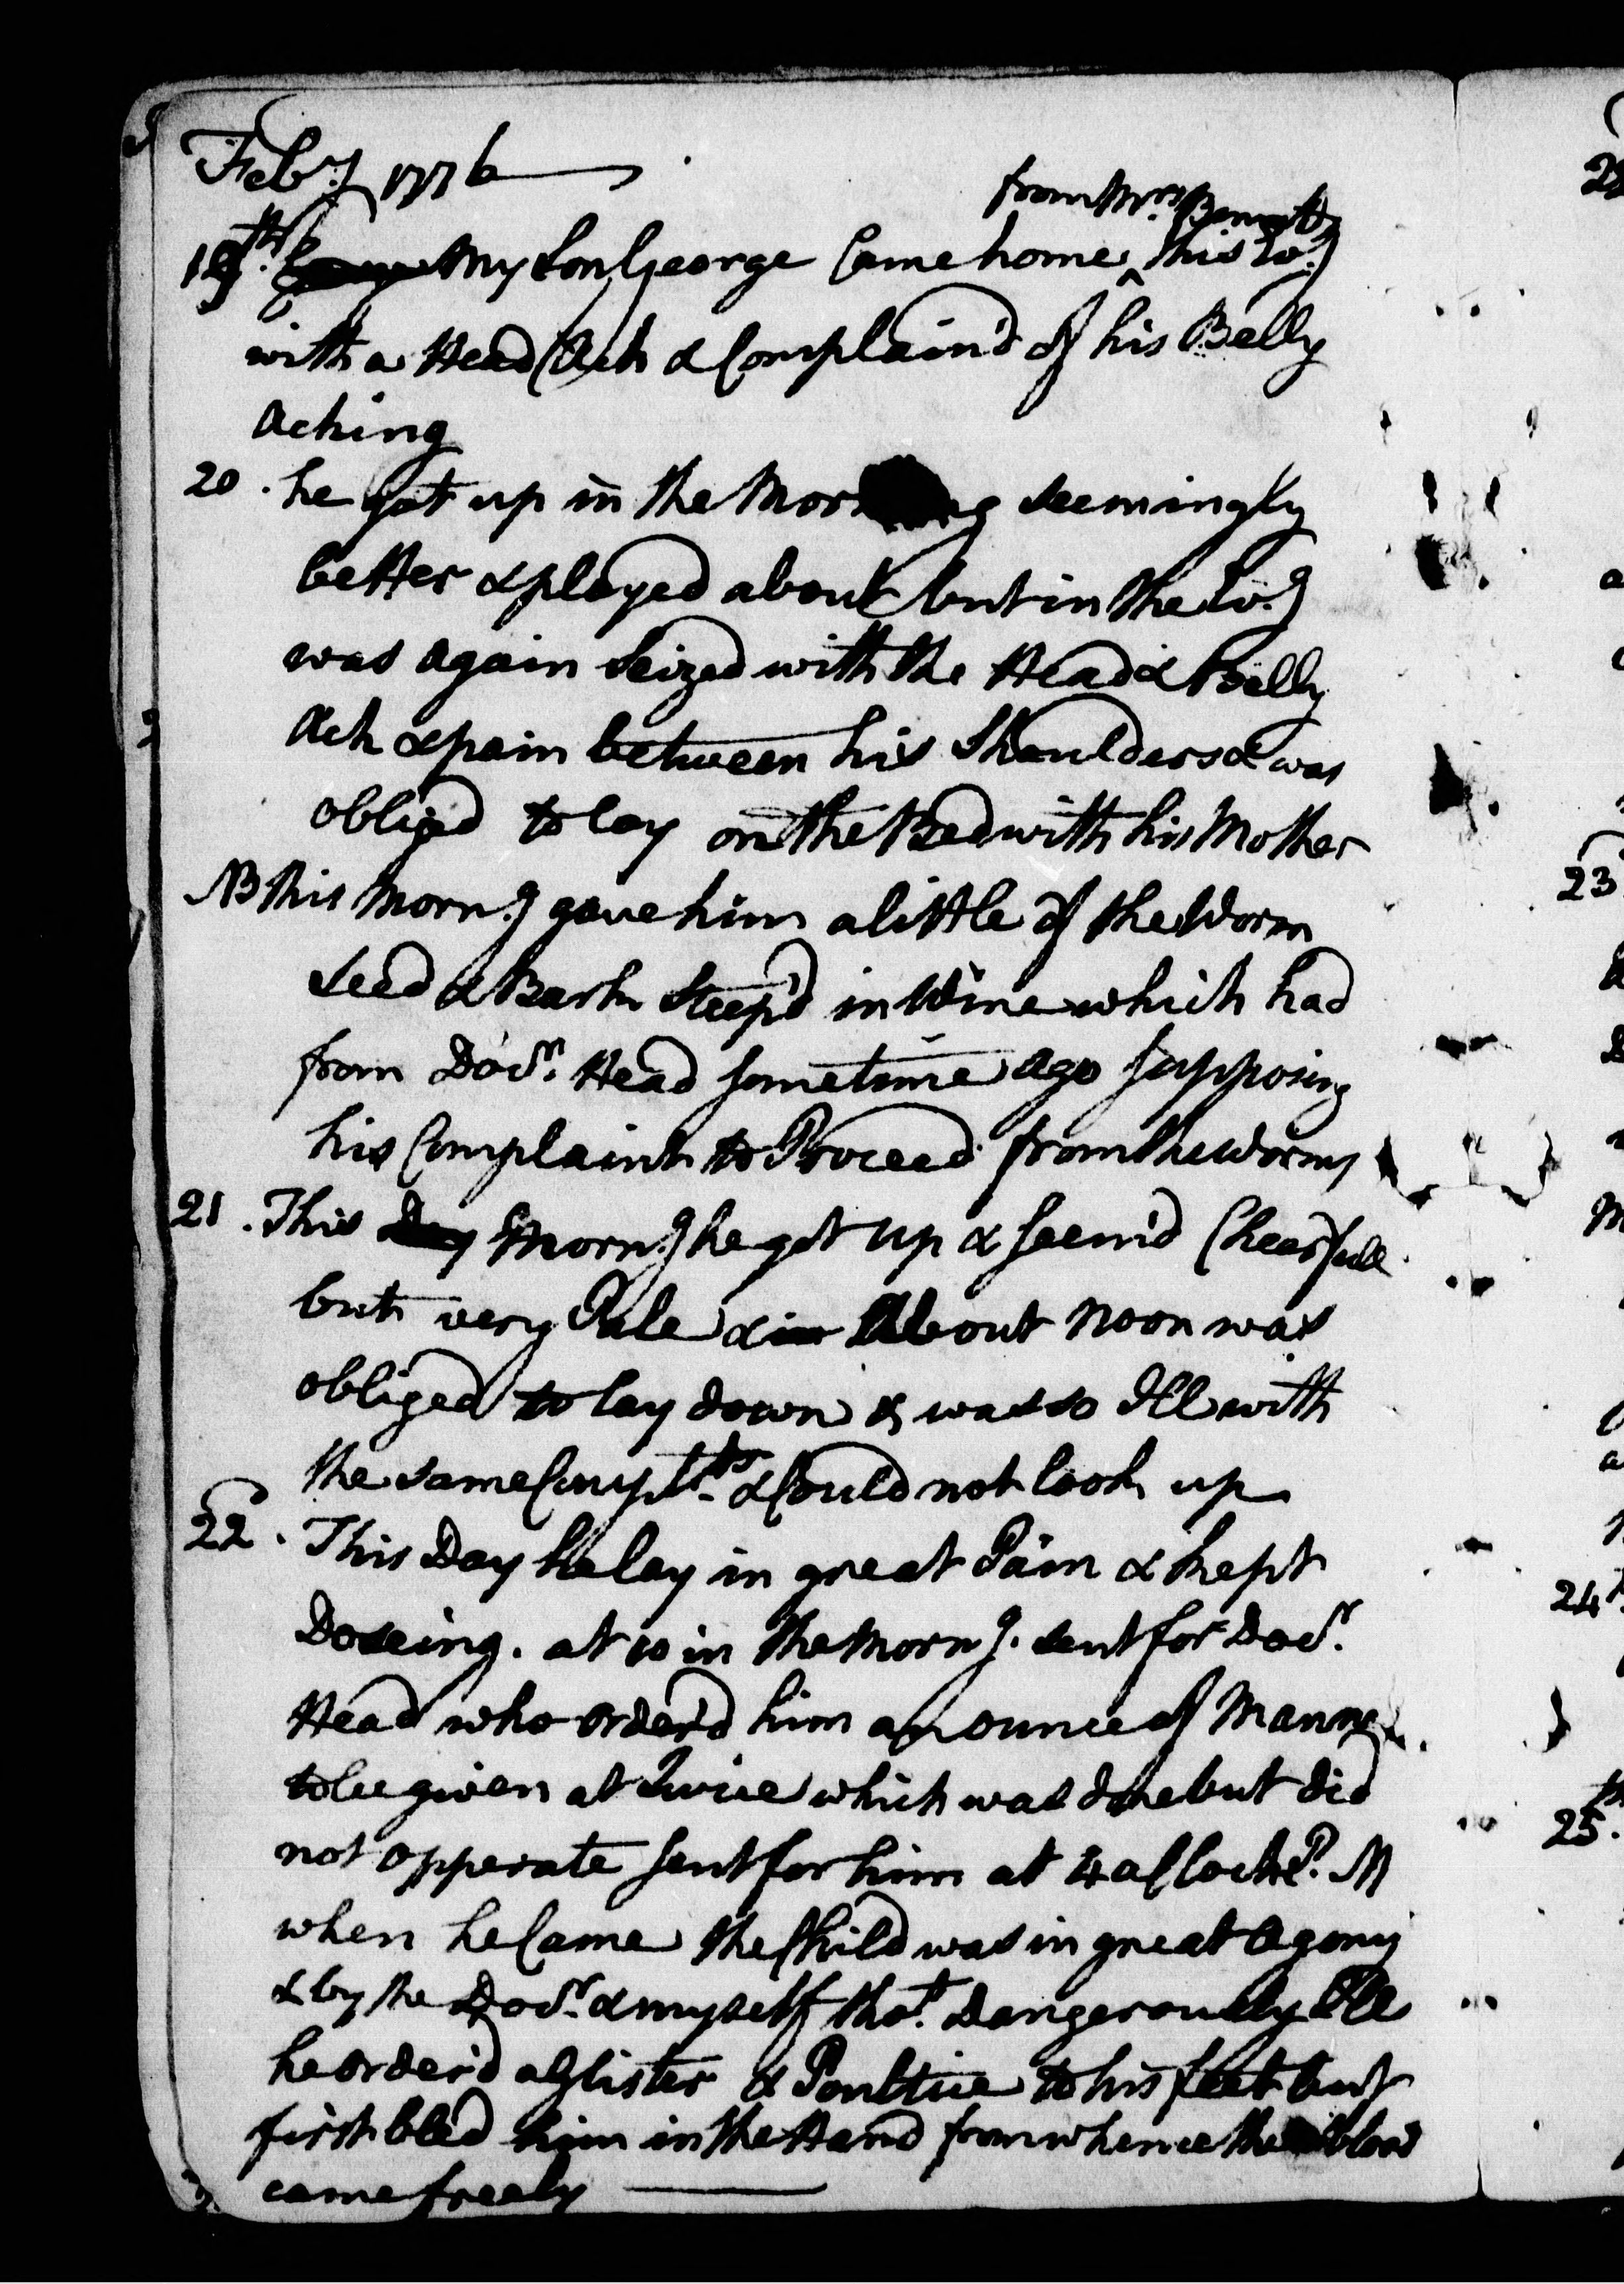 Feb.y 1776
from Mrs. Bennetts
19th. My Son George Came home ^ this Ev.g
with a Head Ach & Complain'd of his Belly
Aching
20. he got up in the Morning seemingly
better & played about but in the Ev.g
was again Seized with the Head & Belly
Ach & pain between his Shoulders & was
obliged to lay on the Bed with his Mother
NB this Morn.g gave him a little of the Worm
Seed & Bark Steep'd in Wine which had
from Doct.r Head sometime ago supposing
his Complaint to Proceed from the Worms
21. This Day Morn.g he got up & seem'd Chearfull
but very Pale & in About Noon was
obliged to lay down & was so Ill with
the same Compl.ts & Could not look up
22. This Day he lay in great Pain & kept
Doseing. at 10 in the Morn.g sent for Doct.r
Head who order'd him an ounce of Manna
to be given at Twice which was done but did
not opperate sent for him at 4 a Clock P. M
when he Came the Child was in great Agony
& by the Doct.r & myself tho.t Dangerously Ill
he order'd a Glister & Poultice to his feet but
first bled him in the Hand from whence the blood
came freely
23
24
25.